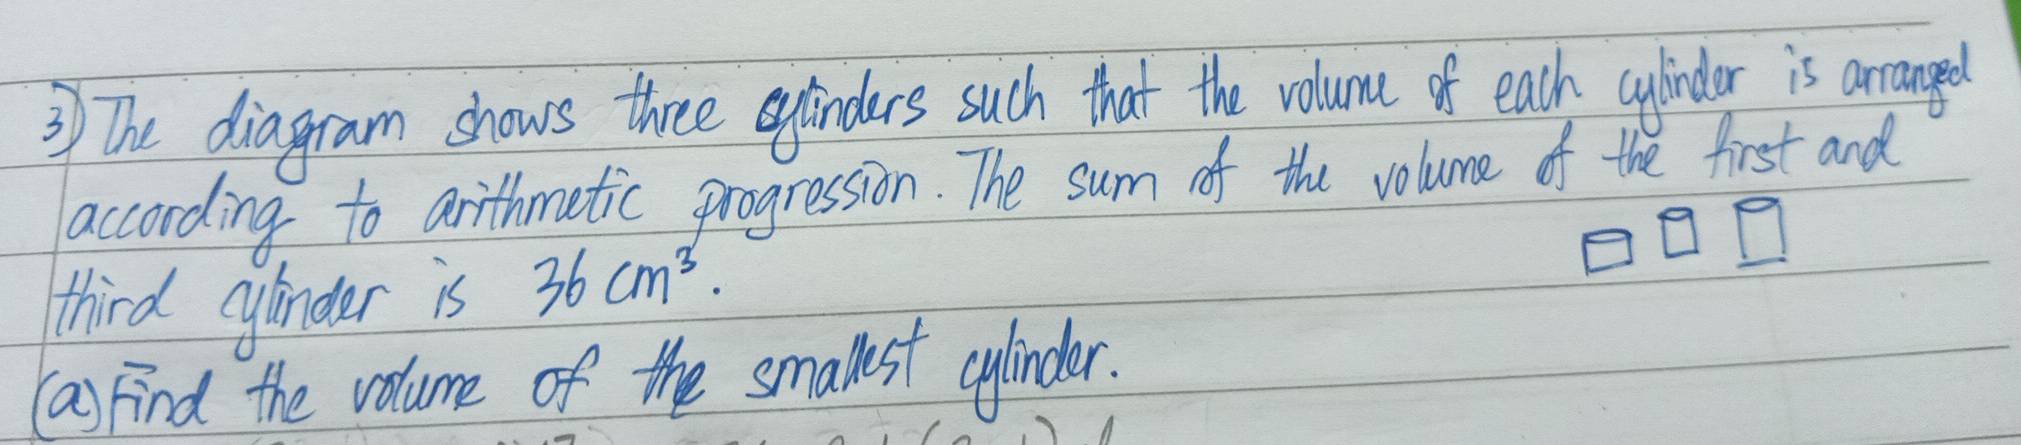 3) The diagram shows three cylinders such that the volume of each cylinder is arranged
according to arithmetic progression. The sum of the volume of the first and
third cylinder is 36 cm³.
(a) Find the volume of the smallest cylinder.